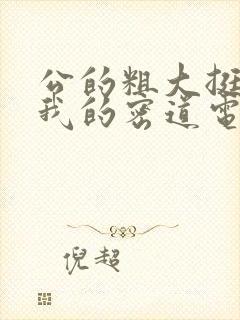 公的粗大挺
我的密道电
倪超